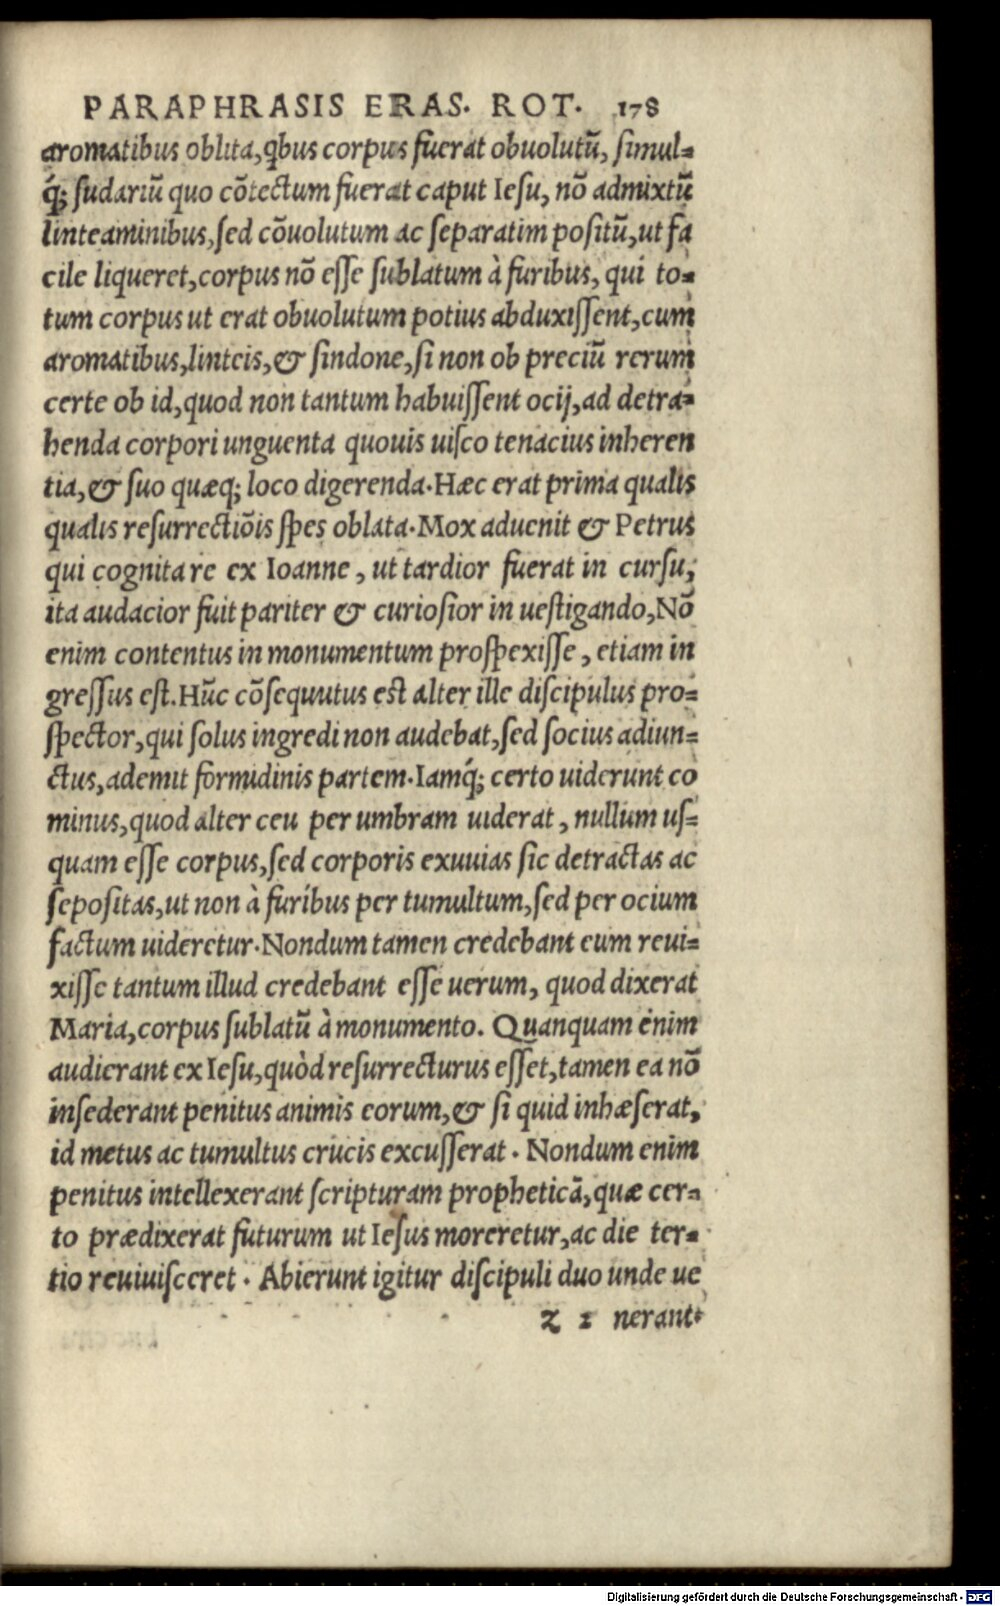 PARAPHRASIS ERAS. ROT. 178
aromatibus oblita, qbus corpus fuerat obuolutū, simul=
q́; sudariū quo cōtectum fuerat caput Iesu, nō admixtū
linteaminibus, sed cōuolutum ac separatim positū, ut fa
cile liqueret, corpus nō esse sublatum à furibus, qui to=
tum corpus ut erat obuolutum potius abduxissent, cum
aromatibus, linteis, & sindone, si non ob preciū rerum
certe ob id, quod non tantum habuissent ocij, ad detra=
henda corpori unguenta quouis uisco tenacius inheren
tia, & suo quæq; loco digerenda. Hæc erat prima qualis
qualis resurrectiōis spes oblata. Mox aduenit & Petrus
qui cognita re ex Ioanne, ut tardior fuerat in cursu,
ita audacior fuit pariter & curiosior in uestigando, Nō
enim contentus in monumentum prospexisse, etiam in
gressus est. Hūc cōsequutus est alter ille discipulus pro=
spector, qui solus ingredi non audebat, sed socius adiun=
ctus, ademit formidinis partem. Iamq́; certo uiderunt co
minus, quod alter ceu per umbram uiderat, nullum us=
quam esse corpus, sed corporis exuuias sic detractas ac
sepositas, ut non à furibus per tumultum, sed per ocium
factum uideretur. Nondum tamen credebant eum reui=
xisse tantum illud credebant esse uerum, quod dixerat
Maria, corpus sublatū à monumento. Quanquam enim
audierant ex Iesu, quòd resurrecturus esset, tamen ea nō
insederant penitus animis eorum, & si quid inhæserat,
id metus ac tumultus crucis excusserat. Nondum enim
penitus intellexerant scripturam propheticā, quæ cer=
to prædixerat futurum ut Iesus moreretur, ac die ter=
tio reuiuisceret. Abierunt igitur discipuli duo unde ue
z 2 nerant
Digitalisierung gefördert durch die Deutsche Forschungsgemeinschaft - DFG